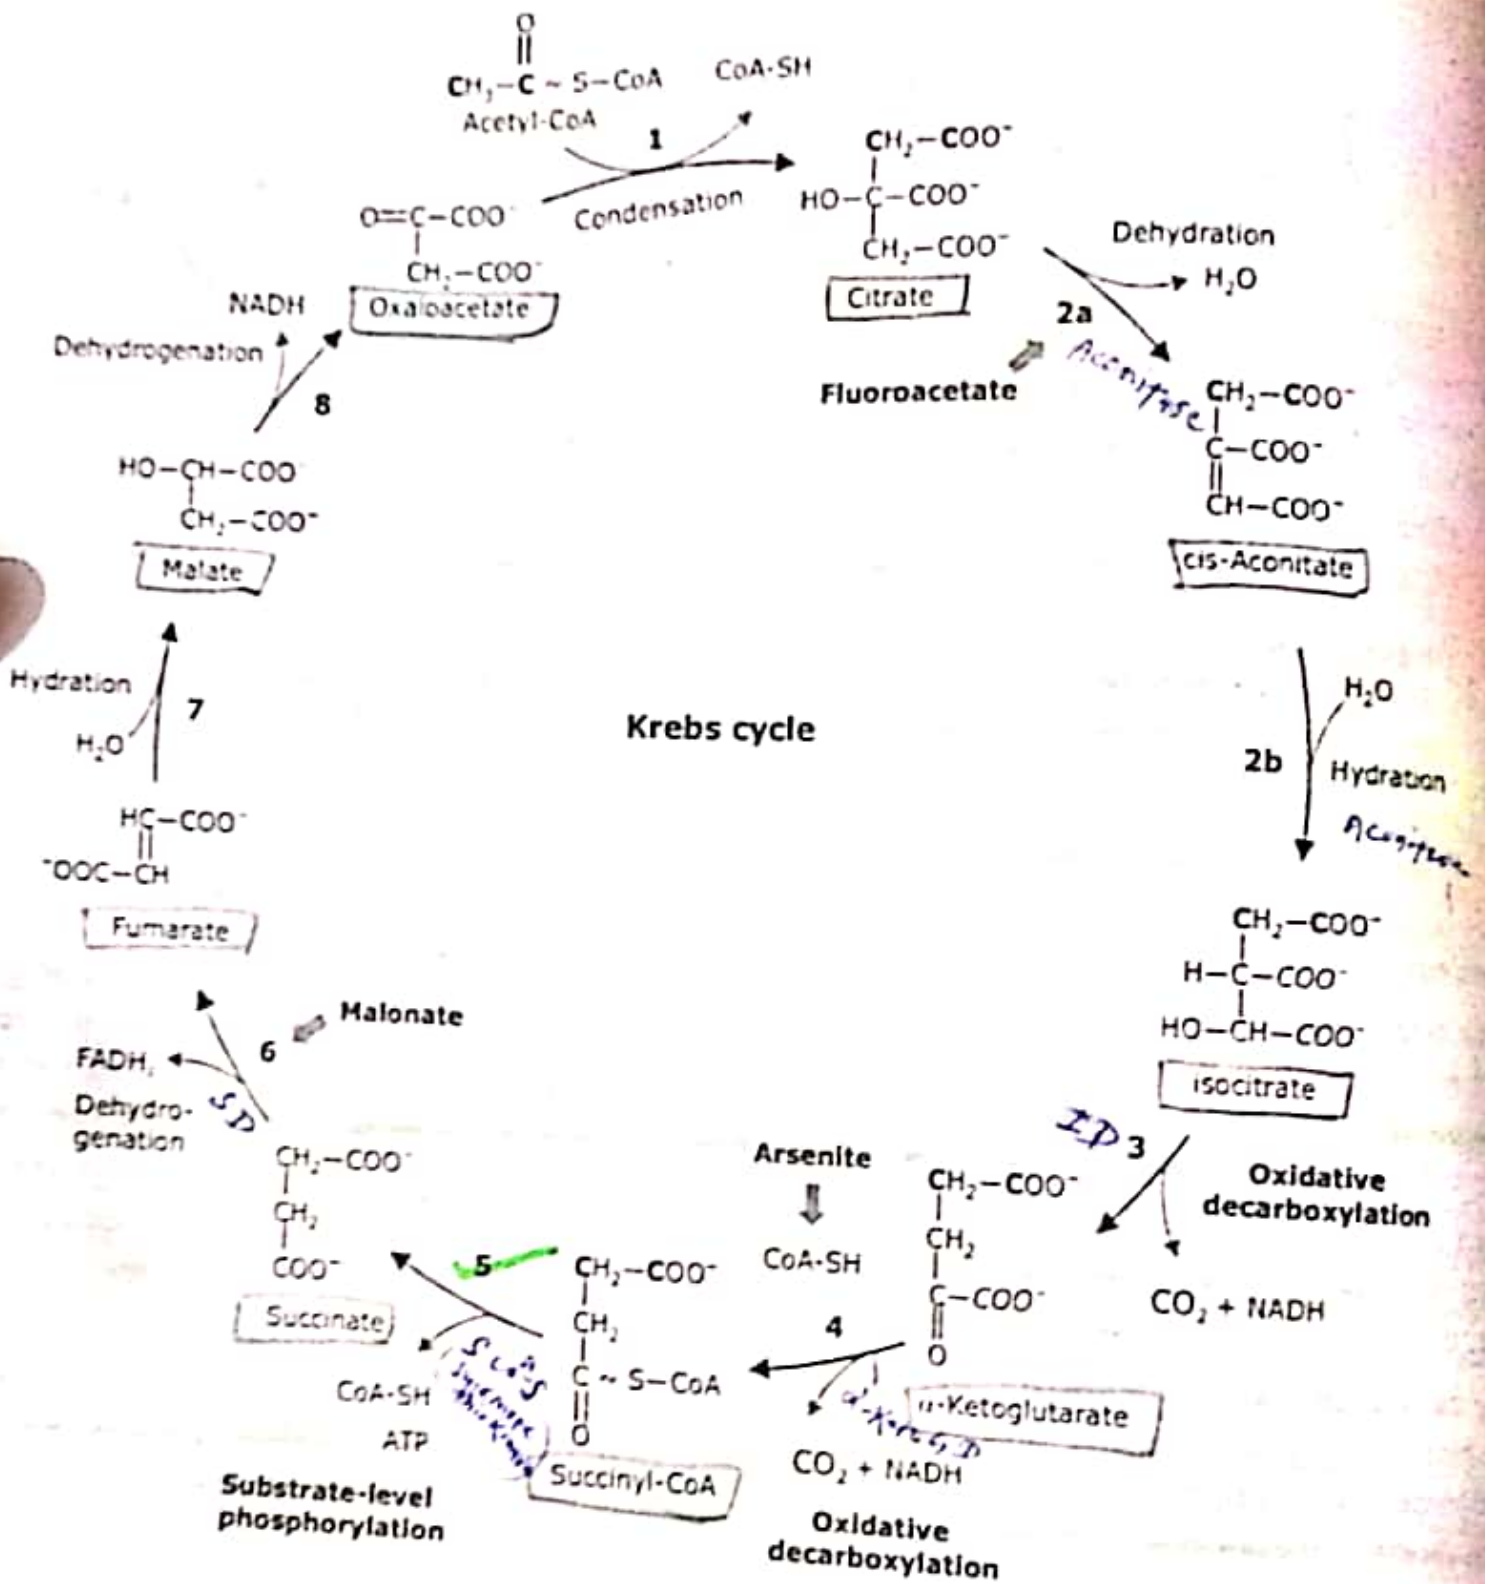 O
CH₃–C ~ S–CoA
Acetyl-CoA
CoA-SH
1
Condensation
CH₂–COO⁻
HO–C–COO⁻
CH₂–COO⁻
Citrate
Dehydration
H₂O
2a
Aconitase
Fluoroacetate
CH₂–COO⁻
C–COO⁻
CH–COO⁻
cis-Aconitate
H₂O
2b
Hydration
CH₂–COO⁻
H–C–COO⁻
HO–CH–COO⁻
isocitrate
ID
3
Oxidative
decarboxylation
CO₂ + NADH
CH₂–COO⁻
CH₂
C–COO⁻
O
α-Ketoglutarate
Arsenite
CoA-SH
4
CO₂ + NADH
Oxidative
decarboxylation
CH₂–COO⁻
CH₂
C ~ S–CoA
O
Succinyl-CoA
5
CoA-SH
ATP
Substrate-level
phosphorylation
CH₂–COO⁻
CH₂
COO⁻
Succinate
SD
6
Malonate
FADH₂
Dehydro-
genation
HC–COO⁻
⁻OOC–CH
Fumarate
Hydration
H₂O
7
HO–CH–COO⁻
CH₂–COO⁻
Malate
8
NADH
Dehydrogenation
O=C–COO⁻
CH₂–COO⁻
Oxaloacetate
Krebs cycle